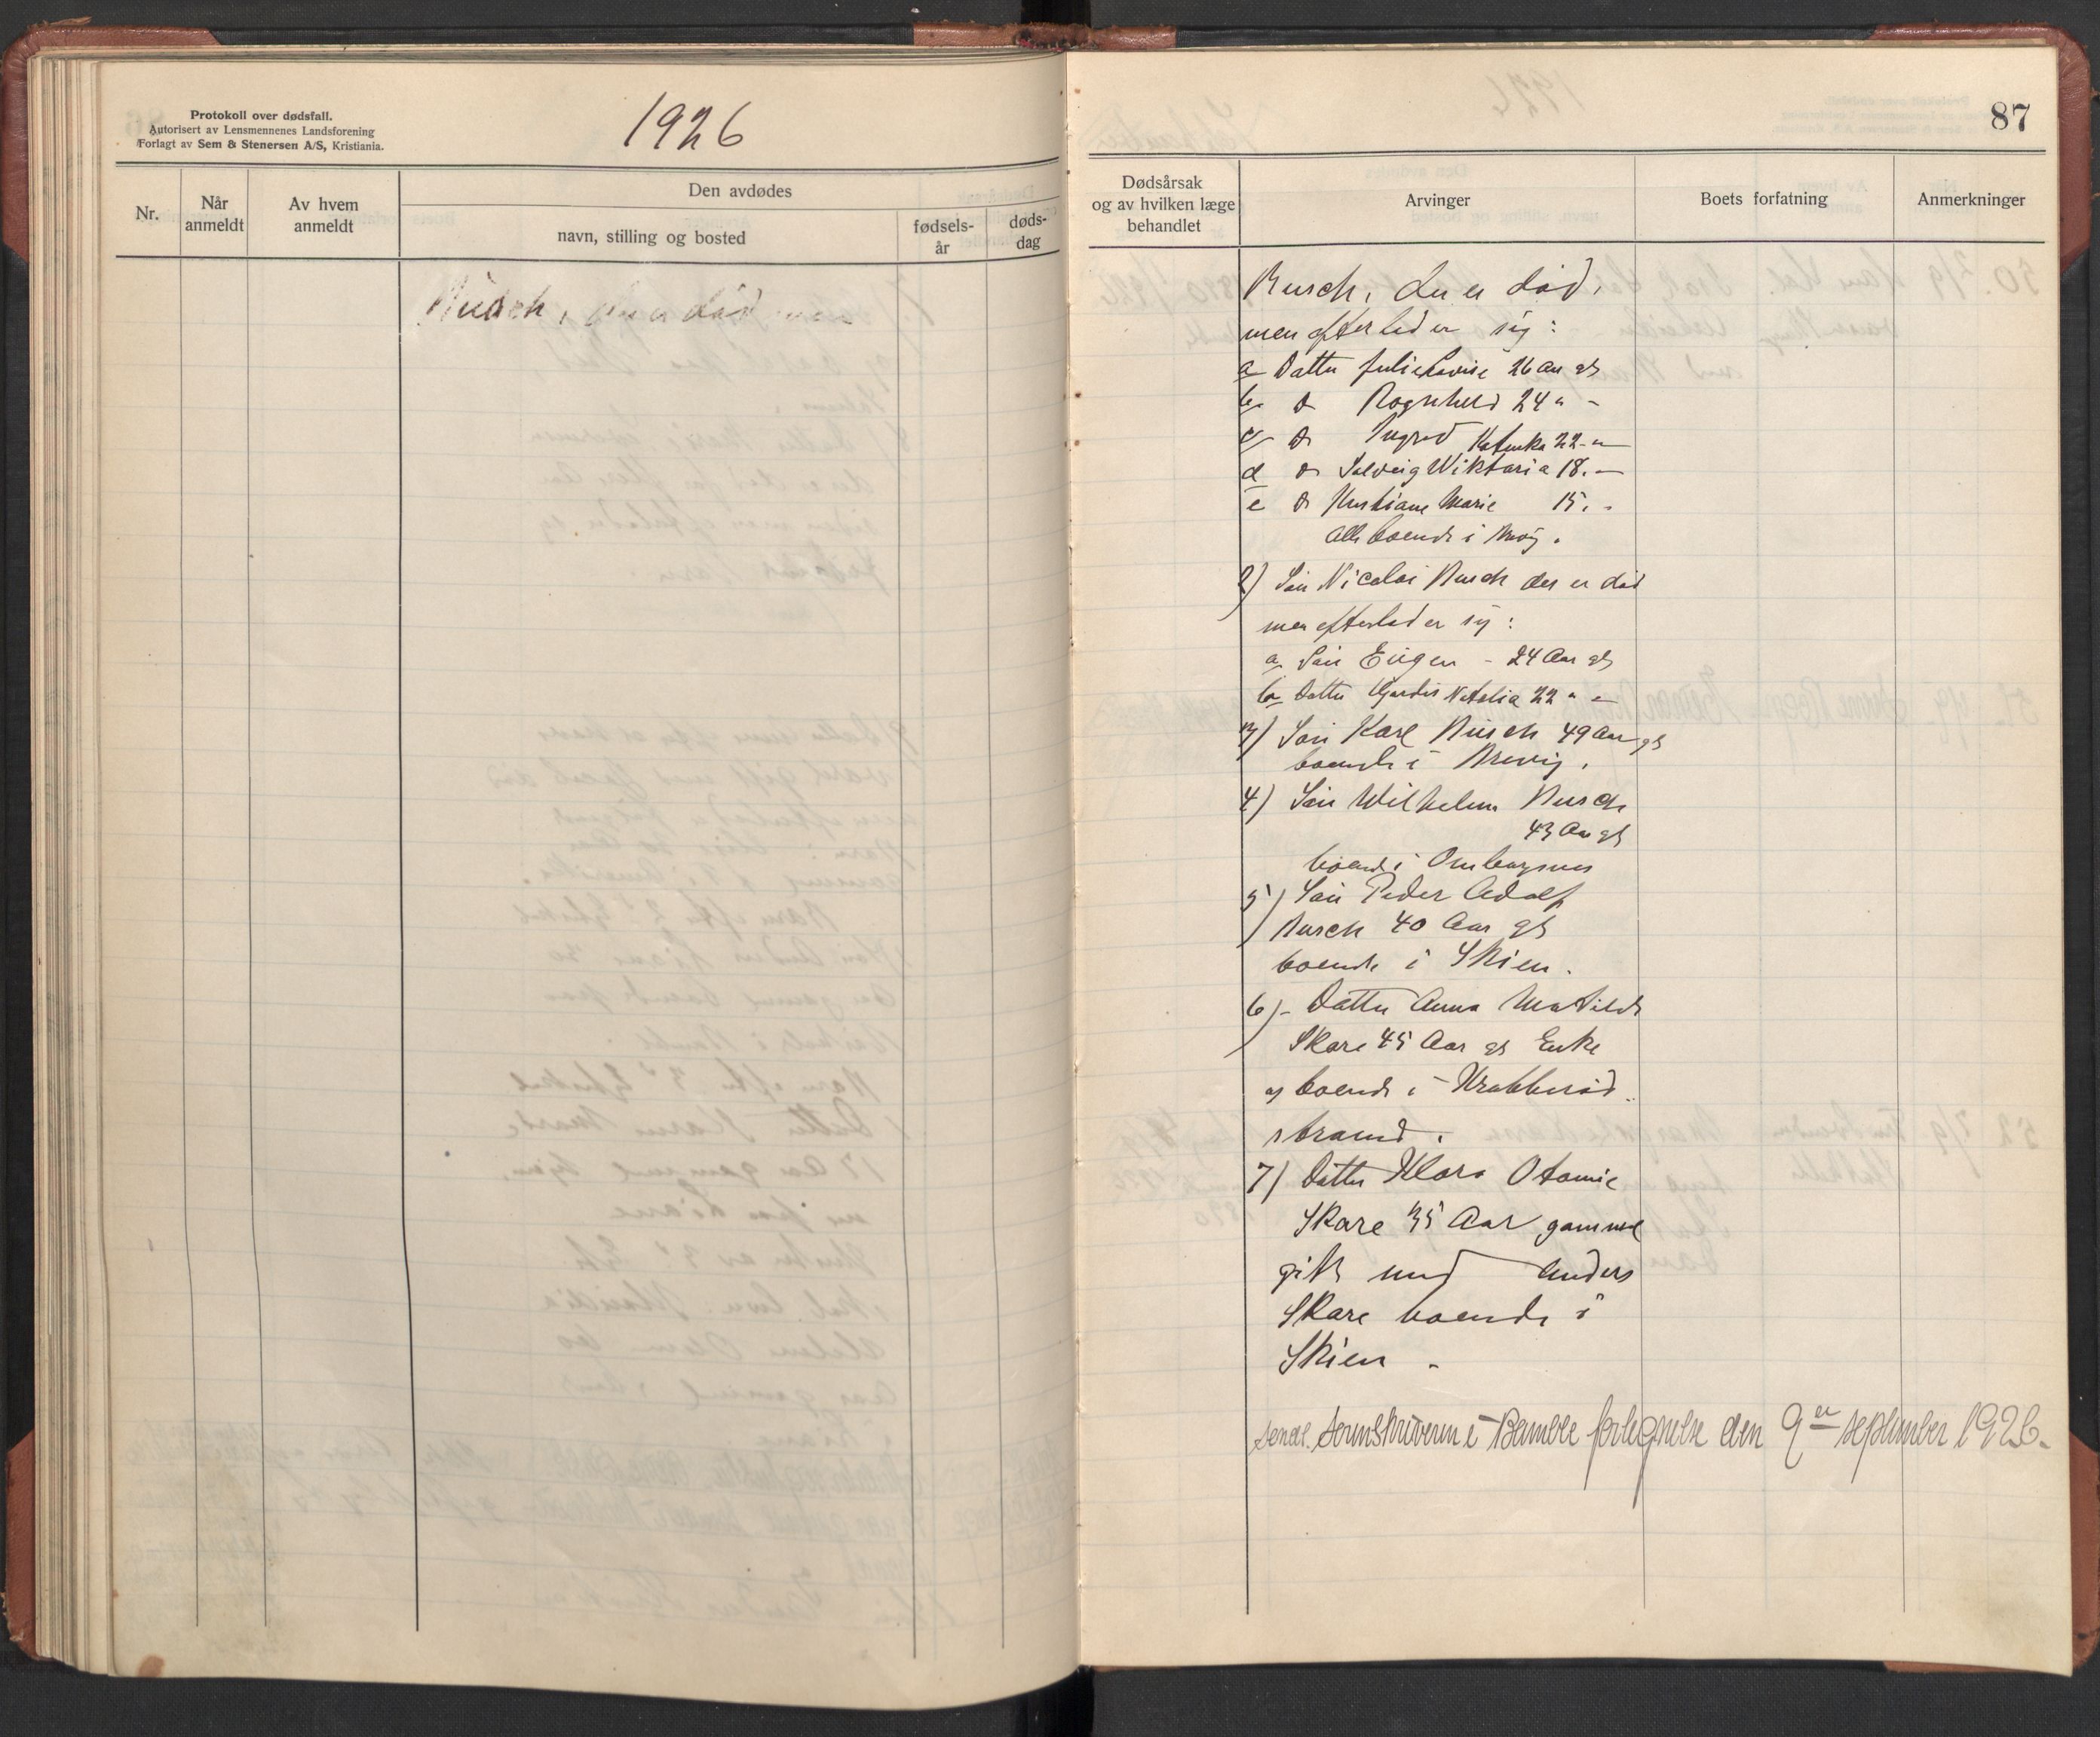 Protokoll over dødsfall.
Autorisert av Lensmennenes Landsforening
Forlagt av Sem & Stenersen A/S, Kristiania.
1926
Nr.
Når anmeldt
Av hvem anmeldt
Den avdødes
navn, stilling og bosted
fødsels-år
døds-dag
Rusch, der er død men
87
Dødsårsak
og av hvilken læge
behandlet
Arvinger
Boets forfatning
Anmerkninger
Rusch, der er død,
men efterlader sig:
a Datter Julie Lovise 26 Aar gl
b. do Ragnhild 24 " -
c do Ingrid Katinka 22 - "
d do Solveig Wiktoria 18. -
e do Kristiane Marie 15. -
alle boende i Brevig.
2) Søn Nicolai Rusch der er død
men efterlader sig:
a. Søn Eugen - 24 Aar gl
b Datter Hjørdis Natalia 22 " -
3) Søn Karl Rusch 49 Aar gl
boende i Brevig.
4) Søn Wilhelm Rusch
43 Aar gl
boende i Ombergsnes
5) Søn Peder Adolf
Rusch 40 Aar gl
boende i Skien.
6) - Datter Anna Matilde
Skare 45 Aar gl Enke
og boende i Krabberød-
strand.
7) Datter Klara Otomie
Skare 35 Aar gammel
gift med Anders
Skare boende i
Skien.
Sendt Sorenskriveren i Bamble fortegnelse den 9de september 1926.